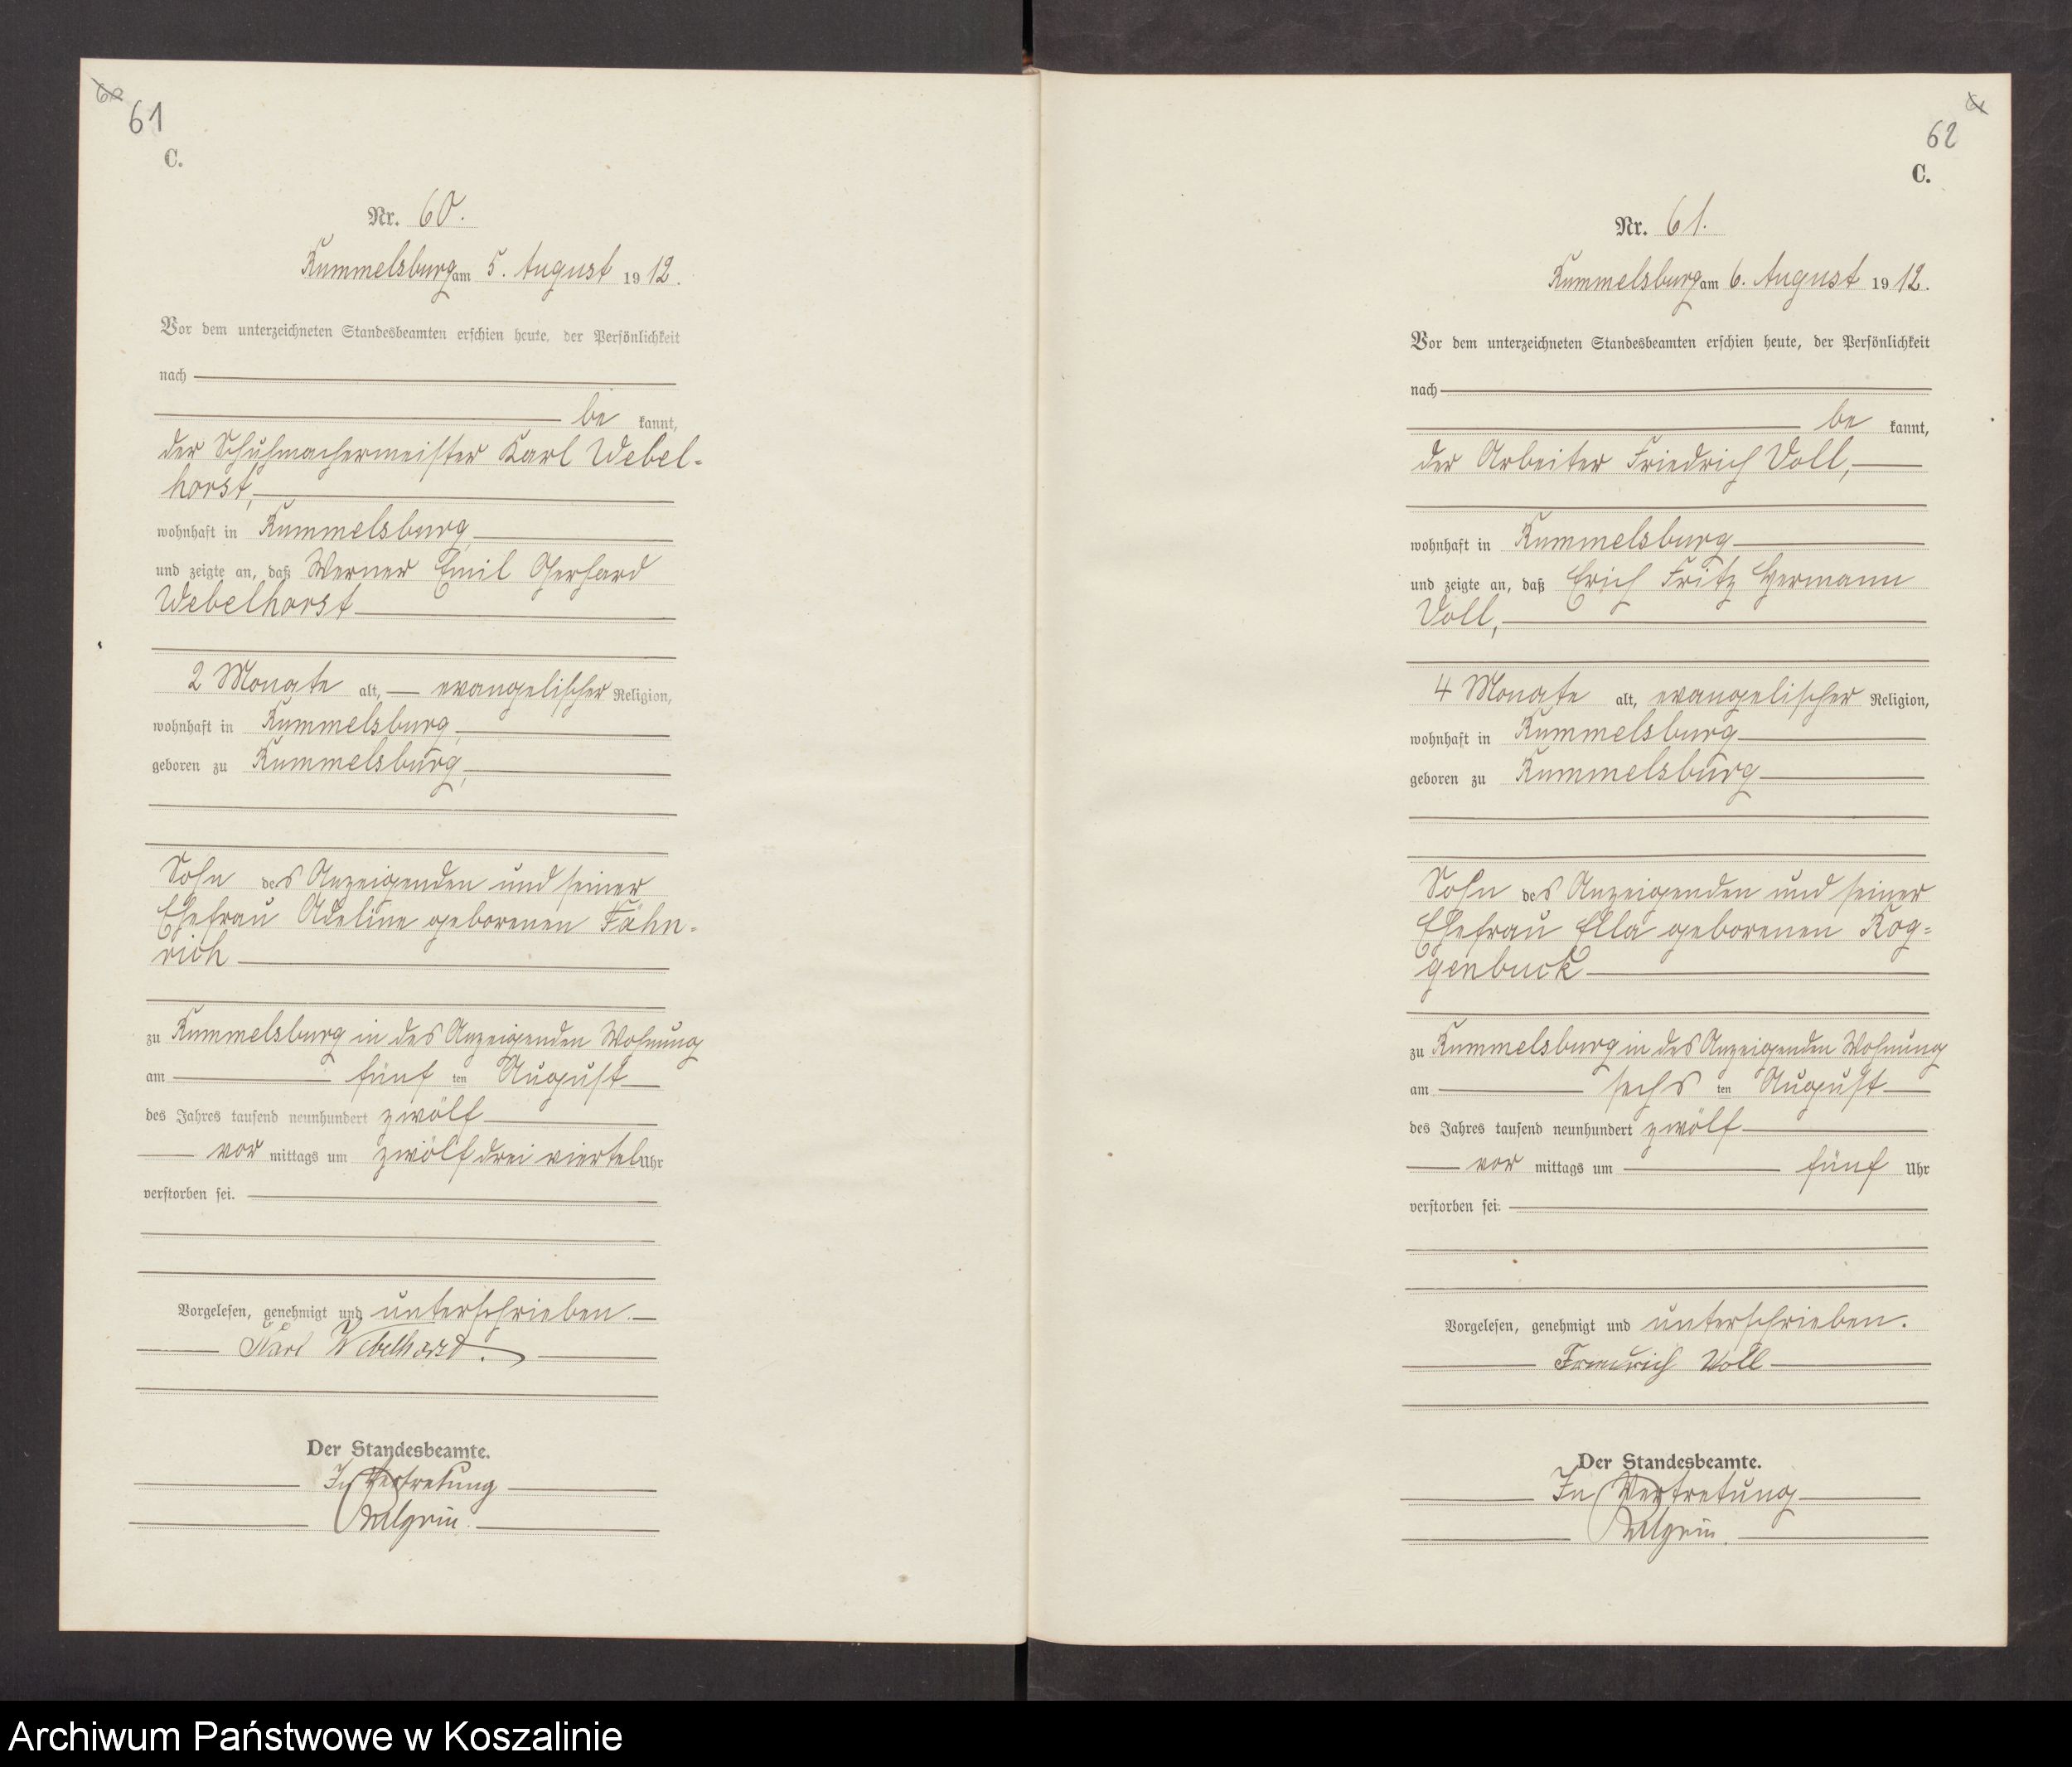 61
C.
Nr. 60.
Rummelsburg am 5. August 1912.
Vor dem unterzeichneten Standesbeamten erschien heute, der Persönlichkeit
nach
be kannt,
der Schuhmachermeister Karl Webel-
horst,
wohnhaft in Rummelsburg
und zeigte an, daß Werner Emil Gerhard
Webelhorst
2 Monate alt, evangelischer Religion,
wohnhaft in Rummelsburg,
geboren zu Rummelsburg,
Sohn des Anzeigenden und seiner
Ehefrau Adeline geborenen Fähn-
rich
zu Rummelsburg in des Anzeigenden Wohnung
am fünf ten August
des Jahres tausend neunhundert zwölf
vor mittags um zwölf drei viertel Uhr
verstorben sei.
Vorgelesen, genehmigt und unterschrieben.
Karl Webelhorst.
Der Standesbeamte.
In Vertretung
62
C.
Nr. 61.
Rummelsburg am 6. August 1912.
Vor dem unterzeichneten Standesbeamten erschien heute, der Persönlichkeit
nach
be kannt,
der Arbeiter Friedrich Voll,
wohnhaft in Rummelsburg
und zeigte an, daß Erich Fritz Hermann
Voll,
4 Monate alt, evangelischer Religion,
wohnhaft in Rummelsburg
geboren zu Rummelsburg
Sohn des Anzeigenden und seiner
Ehefrau Ella geborenen Rog=
genbuck
zu Rummelsburg in des Anzeigenden Wohnung
am sechs ten August
des Jahres tausend neunhundert zwölf
vor mittags um fünf Uhr
verstorben sei.
Vorgelesen, genehmigt und unterschrieben.
Friedrich Voll
Der Standesbeamte.
In Vertretung
Archiwum Państwowe w Koszalinie